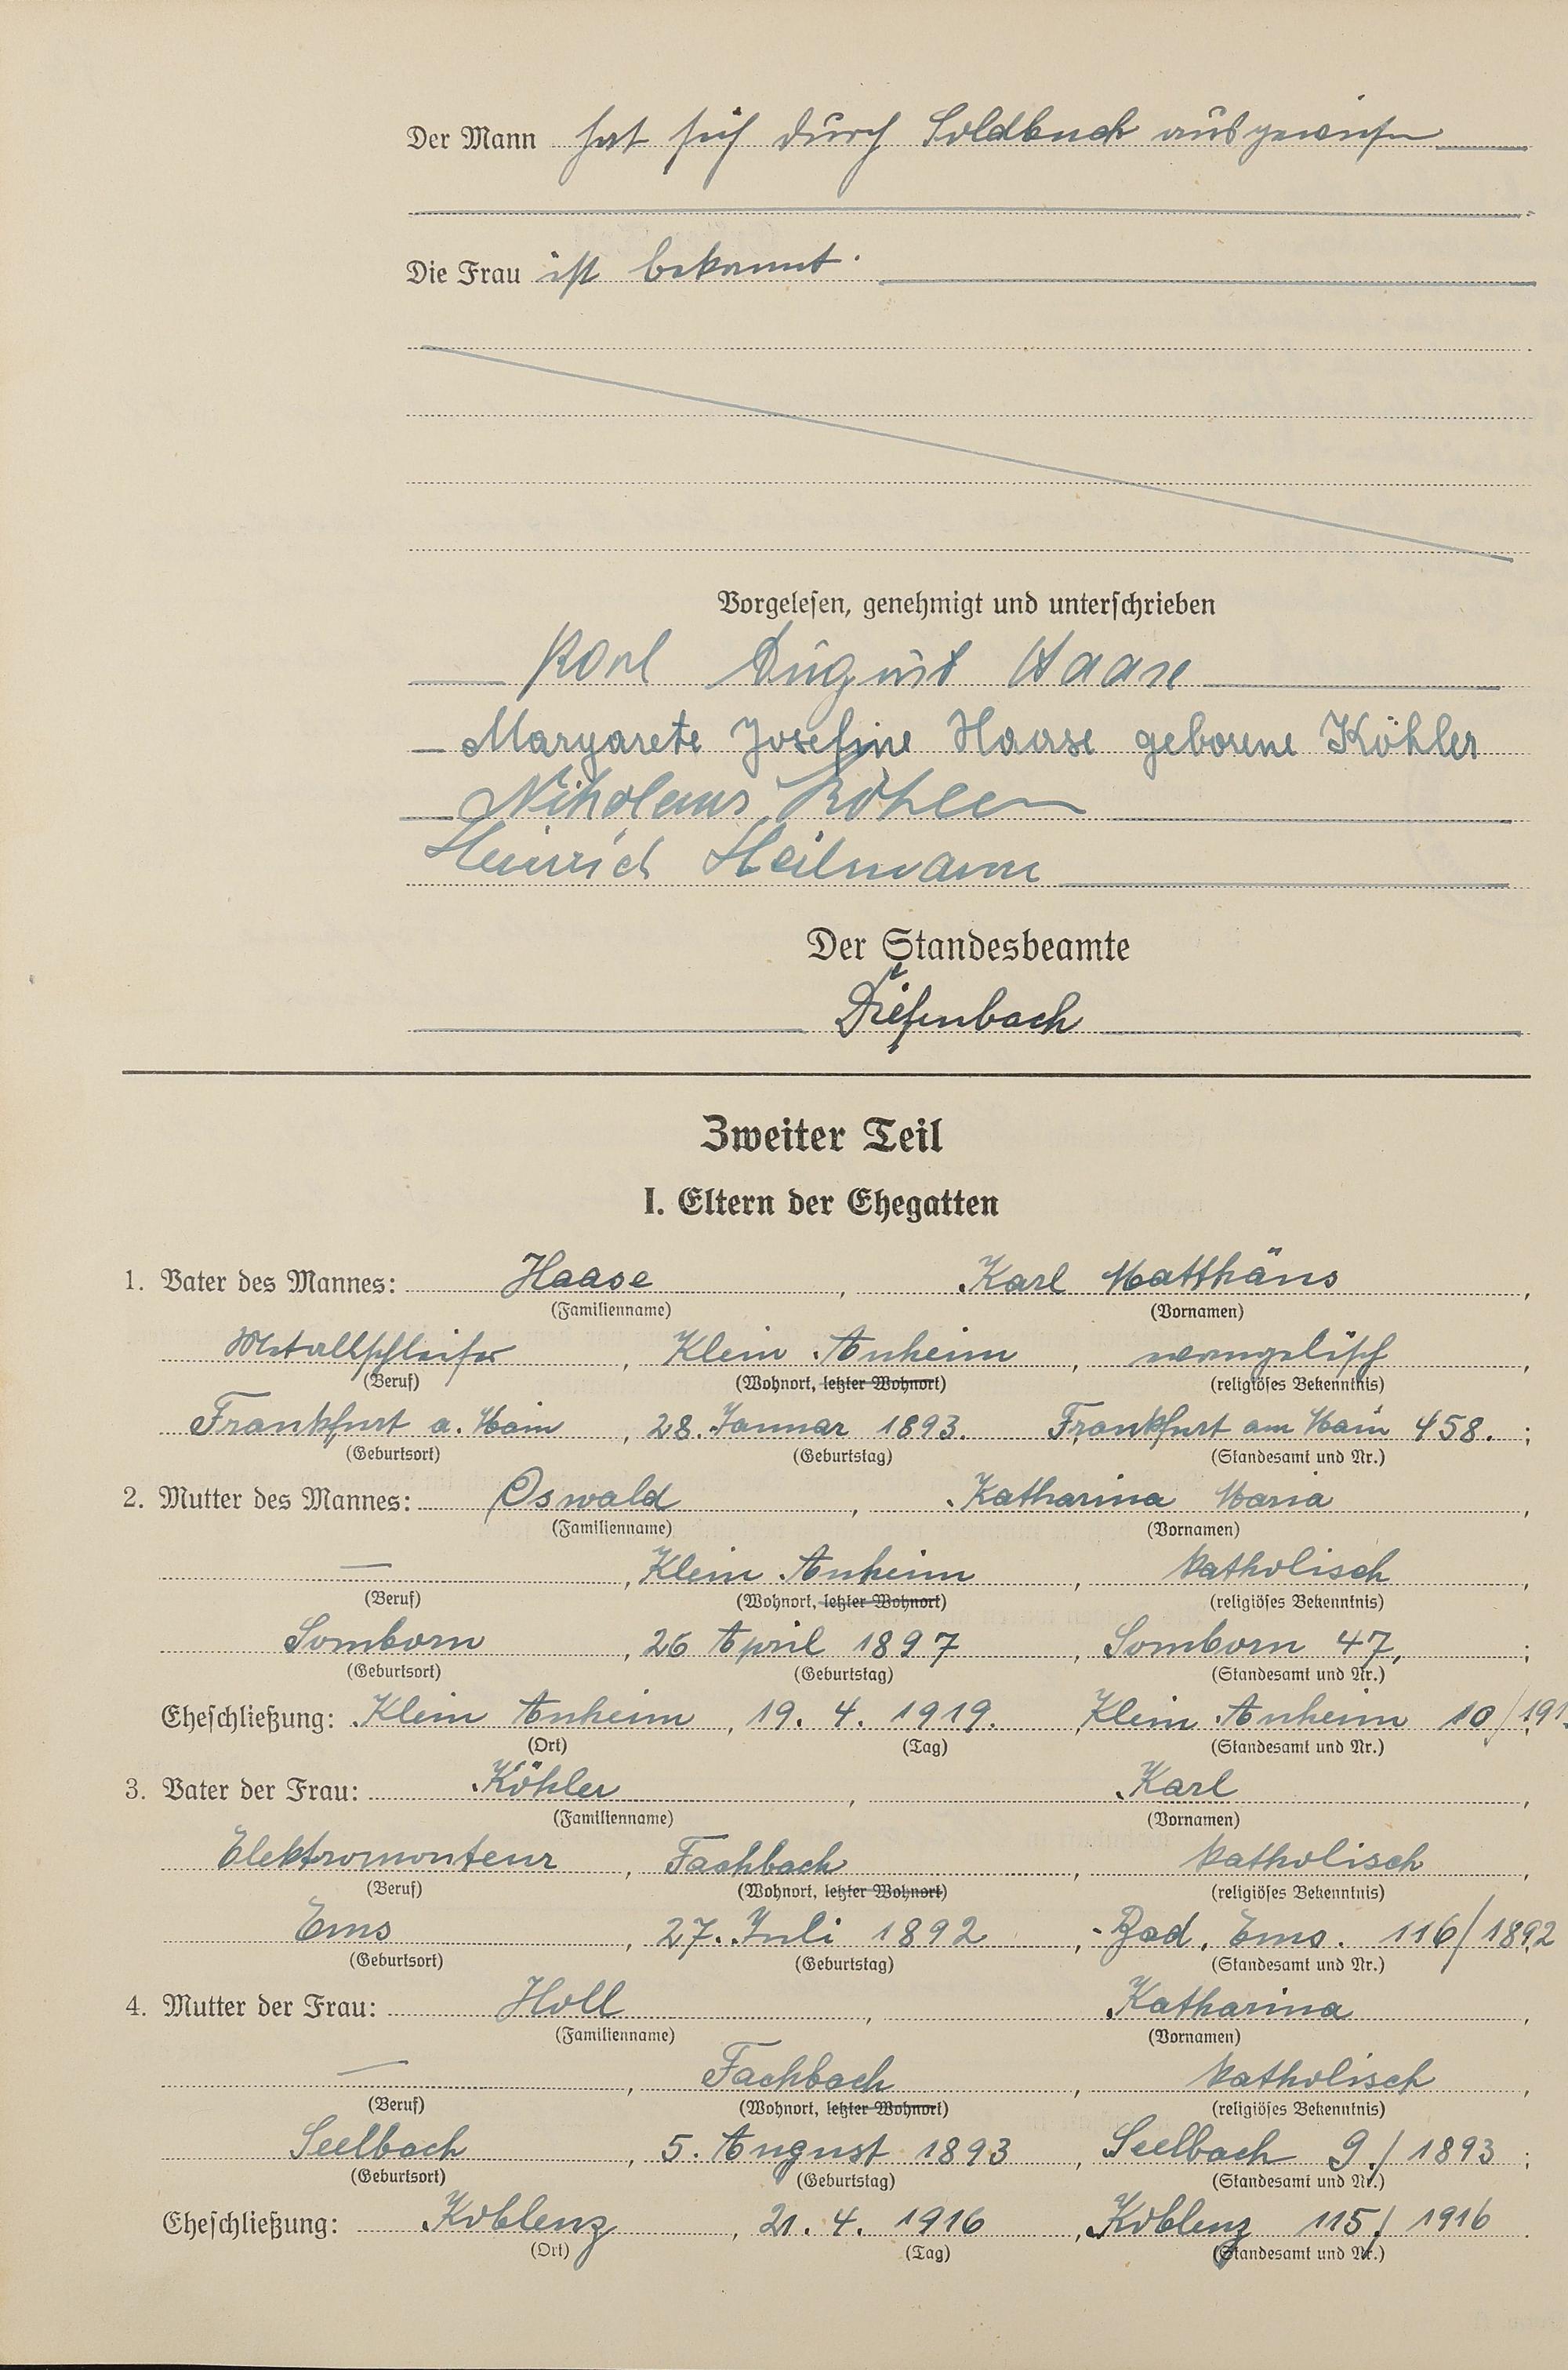 Der Mann hat sich durch Soldbuch ausgewiesen
Die Frau ist bekannt.
Vorgelesen, genehmigt und unterschrieben
Karl August Haase
Margarete Josefine Haase geborene Köhler
Nikolaus Köhler
Heinrich Heilmann
Der Standesbeamte
Diefenbach
Zweiter Teil
I. Eltern der Ehegatten
1. Vater des Mannes: Haase, Karl Matthäus,
(Familienname) (Vornamen)
Metallschleifer, Klein Auheim, evangelisch,
(Beruf) (Wohnort, letzter Wohnort) (religiöses Bekenntnis)
Frankfurt a. Main, 28. Januar 1893. Frankfurt am Main 458. ;
(Geburtsort) (Geburtstag) (Standesamt und Nr.)
2. Mutter des Mannes: Oswald, Katharina Maria,
(Familienname) (Vornamen)
—, Klein Auheim, katholisch,
(Beruf) (Wohnort, letzter Wohnort) (religiöses Bekenntnis)
Somborn, 26 April 1897, Somborn 47, ;
(Geburtsort) (Geburtstag) (Standesamt und Nr.)
Eheschließung: Klein Auheim, 19. 4. 1919., Klein Auheim 10/191
(Ort) (Tag) (Standesamt und Nr.)
3. Vater der Frau: Köhler, Karl,
(Familienname) (Vornamen)
Elektromonteur, Fachbach, katholisch,
(Beruf) (Wohnort, letzter Wohnort) (religiöses Bekenntnis)
Ems, 27. Juli 1892, Bad. Ems. 116/1892
(Geburtsort) (Geburtstag) (Standesamt und Nr.)
4. Mutter der Frau: Holl, Katharina,
(Familienname) (Vornamen)
—, Fachbach, katholisch,
(Beruf) (Wohnort, letzter Wohnort) (religiöses Bekenntnis)
Seelbach, 5. August 1893, Seelbach 9./1893 ;
(Geburtsort) (Geburtstag) (Standesamt und Nr.)
Eheschließung: Koblenz, 21. 4. 1916, Koblenz 115/1916.
(Ort) (Tag) (Standesamt und Nr.)